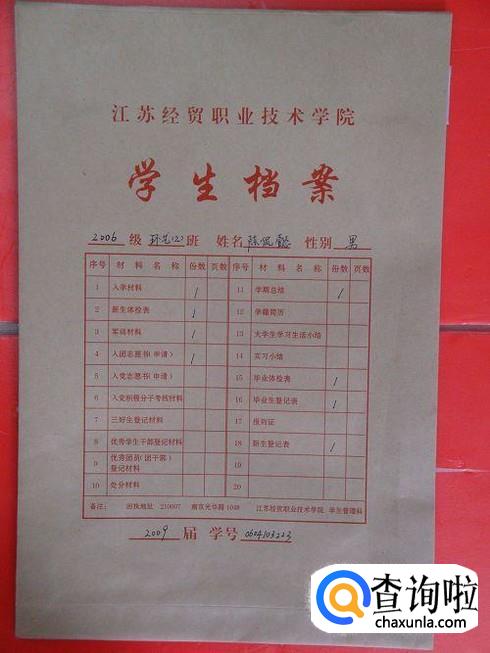 江苏经贸职业技术学院
学生档案
2006 级 环艺(2) 班 姓名 陈 性别 男
序号 材料名称 份数 页数 序号 材料名称 份数 页数
1 入学材料 1 11 学期总结 1
2 新生体检表 1 12 学籍简历
3 军训材料 1 13 大学生学习生活小结
4 入团志愿书(申请) 1 14 实习小结
5 入党志愿书(申请) 15 毕业体检表 1
6 入党积极分子考核材料 16 毕业生登记表 1
7 三好生登记材料 17 报到证
8 优秀学生干部登记材料 18 新生登记表 1
9 优秀团员(团干部)登记材料 19
10 处分材料 20
备注: 回执地址 210007 南京光华路 104# 江苏经贸职业技术学院 学生管理科
2009 届 学号 0604103223
查询啦
chaxunla.com